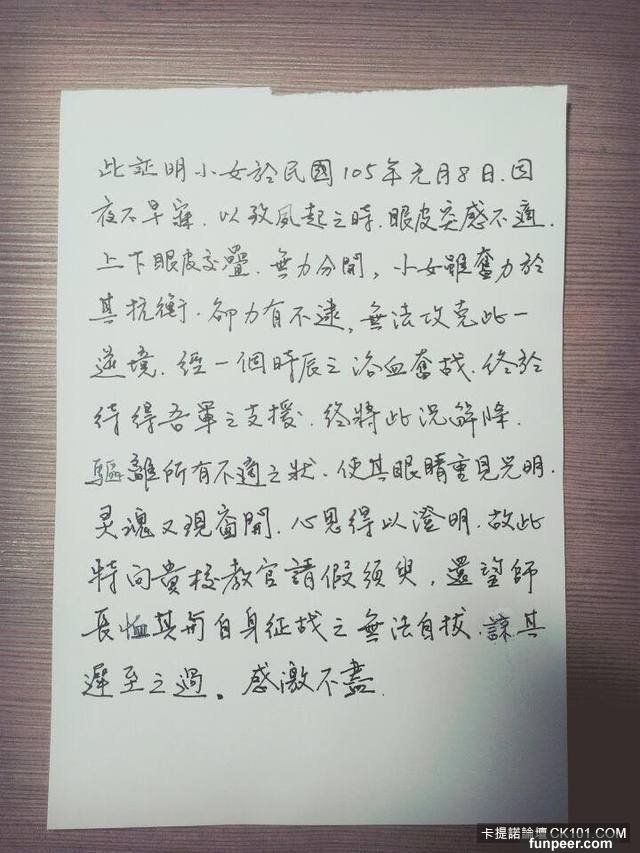 此証明小女於民國105年元月8日.因
夜不早寐.以致夙起之時.眼皮突感不適.
上下眼皮交疊.無力分開,小女雖奮力於
其抗衡.卻力有不逮,無法攻克此一
逆境.經一個時辰之浴血奮战.終於
待得吾軍之支援.終將此況解除.
驅離所有不適之狀.使其眼睛重見光明.
灵魂又現窗開.心思得以澄明.故此
特向貴校教官請假須臾,還望師
長恤其甫自身征战之無法自拔.諒其
遲至之過。感激不盡.
卡提諾論壇 CK101.COM
funpeer.com